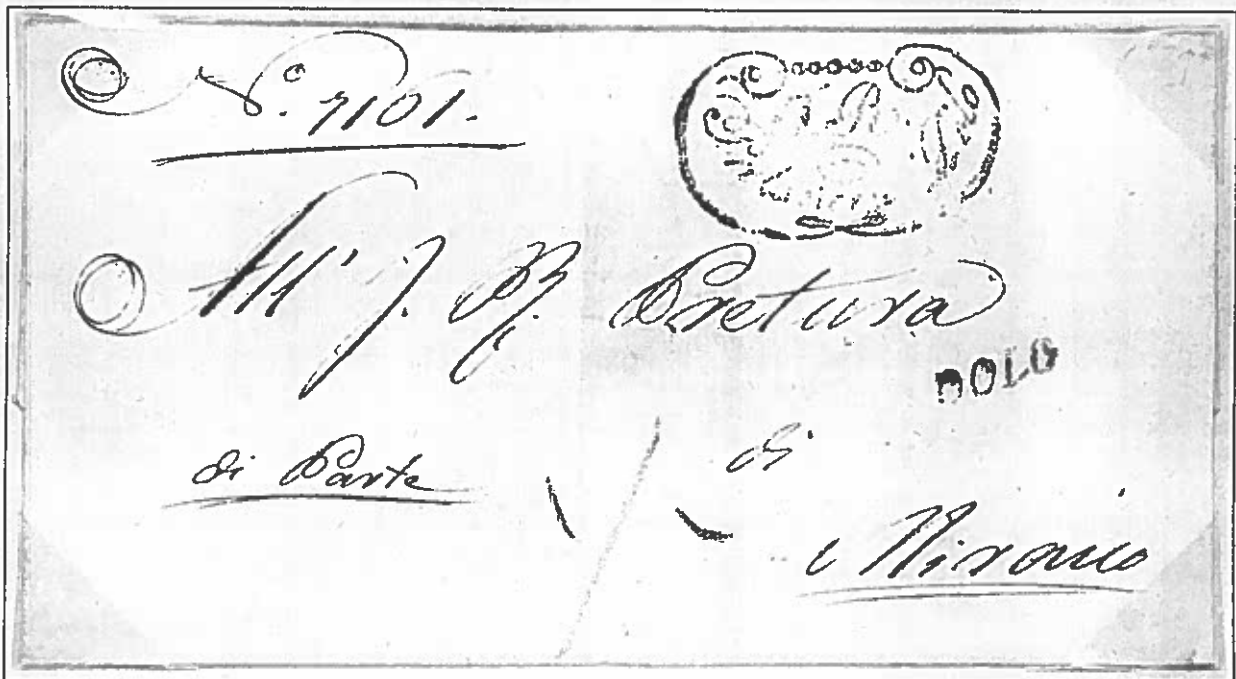 N.° 7101.
All' I. R. Pretura
DOLO
di Parte
di
Mirano